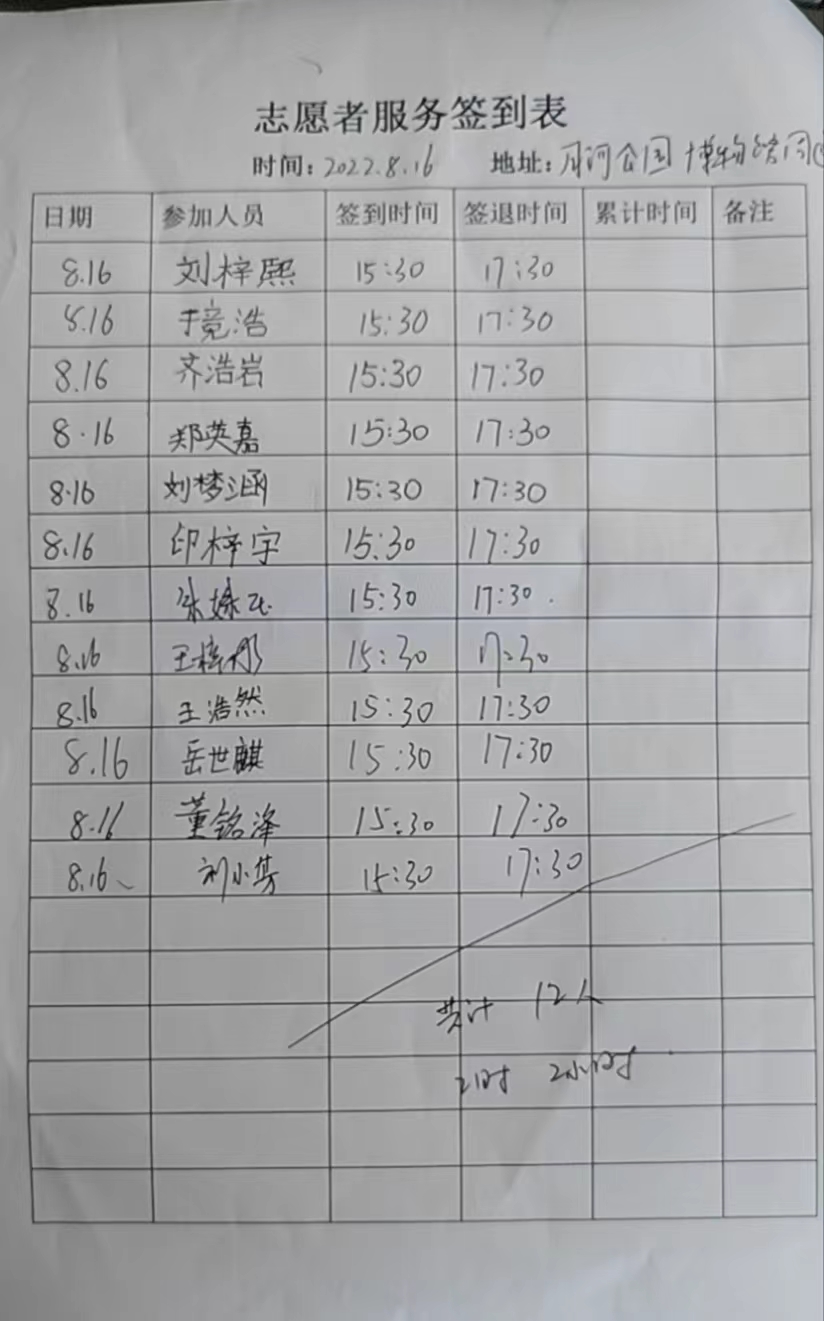 志愿者服务签到表
时间:2022.8.16 地址:月河公园 博物馆周
日期 参加人员 签到时间 签退时间 累计时间 备注
8.16 刘梓熙 15:30 17:30
8.16 于竟浩 15:30 17:30
8.16 齐浩岩 15:30 17:30
8.16 郑英嘉 15:30 17:30
8.16 刘梦涵 15:30 17:30
8.16 印梓宇 15:30 17:30
8.16 15:30 17:30.
8.16 王梓彤 15:30 17:30
8.16 王浩然 15:30 17:30
8.16 岳世麒 15:30 17:30
8.16 董铭泽 15:30 17:30
8.16 刘小 15:30 17:30
共计 12人
时 2小时